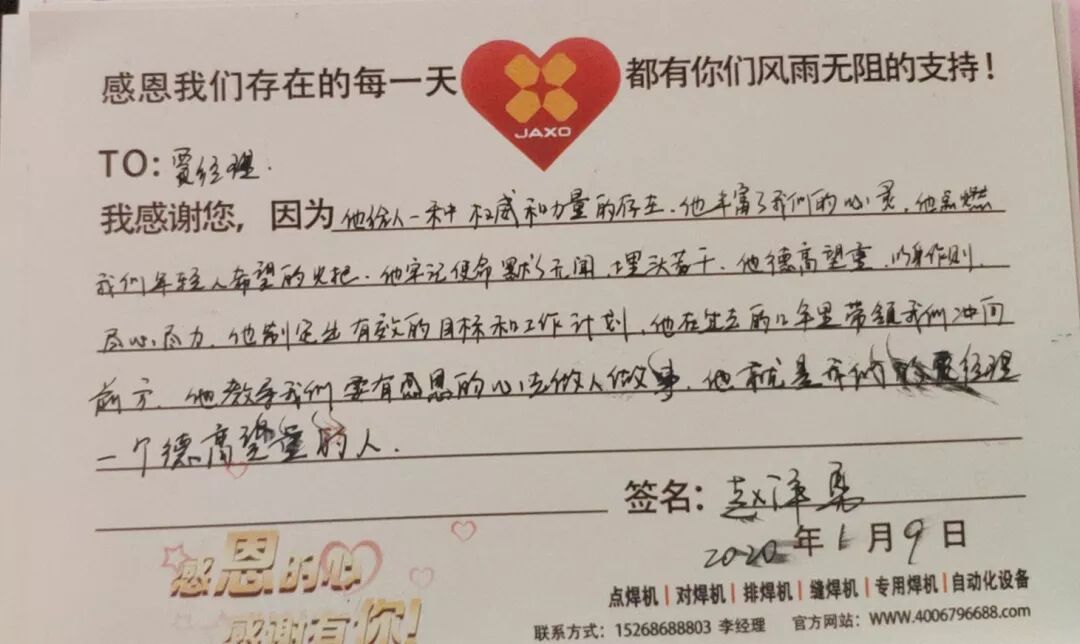 感恩我们存在的每一天 都有你们风雨无阻的支持！
JAXO
TO: 贾经理.
我感谢您，因为他给人一种权威和力量的存在.他丰富了我们的心灵.他点燃
我们年轻人希望的火把.他牢记使命默默无闻.埋头苦干.他德高望重.以身作则.
尽心尽力.他制定出有效的目标和工作计划.他在过去的几年里带领我们冲向
前方.他教导我们要有感恩的心去做人做事.他就是我们的贾经理
一个德高望重的人.
签名：赵泽
2020年1月9日
感恩的心
感谢有你!
点焊机|对焊机|排焊机|缝焊机|专用焊机|自动化设备
联系方式：15268688803 李经理 官方网站：WWW.4006796688.com